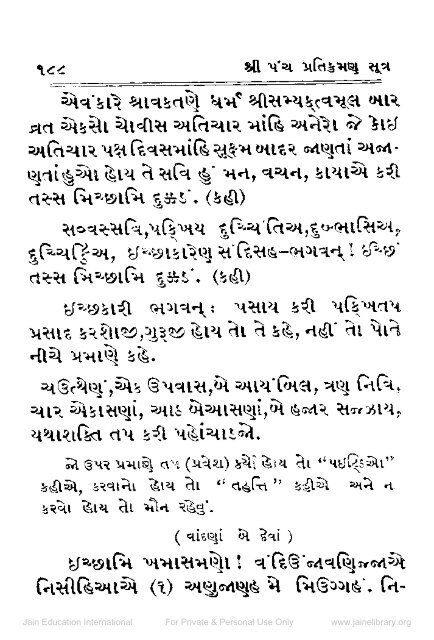 ૧૮૮ શ્રી પંચ પ્રતિક્રમણ સૂત્ર
એવંકારે શ્રાવકતણે ધર્મે શ્રીસમ્યક્ત્વમૂલ બાર
વ્રત એકસો ચોવીસ અતિચાર માંહિ અનેરો જે કોઇ
અતિચાર પક્ષ દિવસમાંહિ સુક્ષ્મ બાદર જાણતાં અજા-
ણતાં હુઓ હોય તે સવિ હું મન, વચન, કાયાએ કરી
તસ્સ મિચ્છામિ દુક્કડં. (કહી)
સવ્વસ્સવિ,પક્ખિય દુચ્ચિંતિઅ,દુબ્ભાસિઅ,
દુચ્ચિટ્ઠિઅ, ઇચ્છાકારેણ સંદિસહ-ભગવન્! ઇચ્છં
તસ્સ મિચ્છામિ દુક્કડં. (કહી)
ઇચ્છકારી ભગવન્: પસાય કરી પક્ખિતપ
પ્રસાદ કરશોજી,ગુરૂજી હોય તો તે કહે, નહીં તો પોતે
નીચે પ્રમાણે કહે.
ચઉત્થેણં,એક ઉપવાસ,બે આયંબિલ, ત્રણ નિવિ,
ચાર એકાસણાં, આઠ બેઆસણાં,બે હજાર સજ્ઝાય,
યથાશક્તિ તપ કરી પહોંચાડજો.
જો ઉપર પ્રમાણે તપ (પ્રવેશ) કર્યો હોય તો “પઇટ્ઠિઓ”
કહીએ, કરવાનો હોય તો “તહત્તિ” કહીએ અને ન
કરવો હોય તો મૌન રહેવું.
( વાંદણાં બે દેવાં )
ઇચ્છામિ ખમાસમણો! વંદિઉં જાવણિજ્જાએ
નિસીહિઆએ (૧) અણુજાણહ મે મિઉગ્ગહં. નિ-
Jain Education International For Private & Personal Use Only www.jainelibrary.org